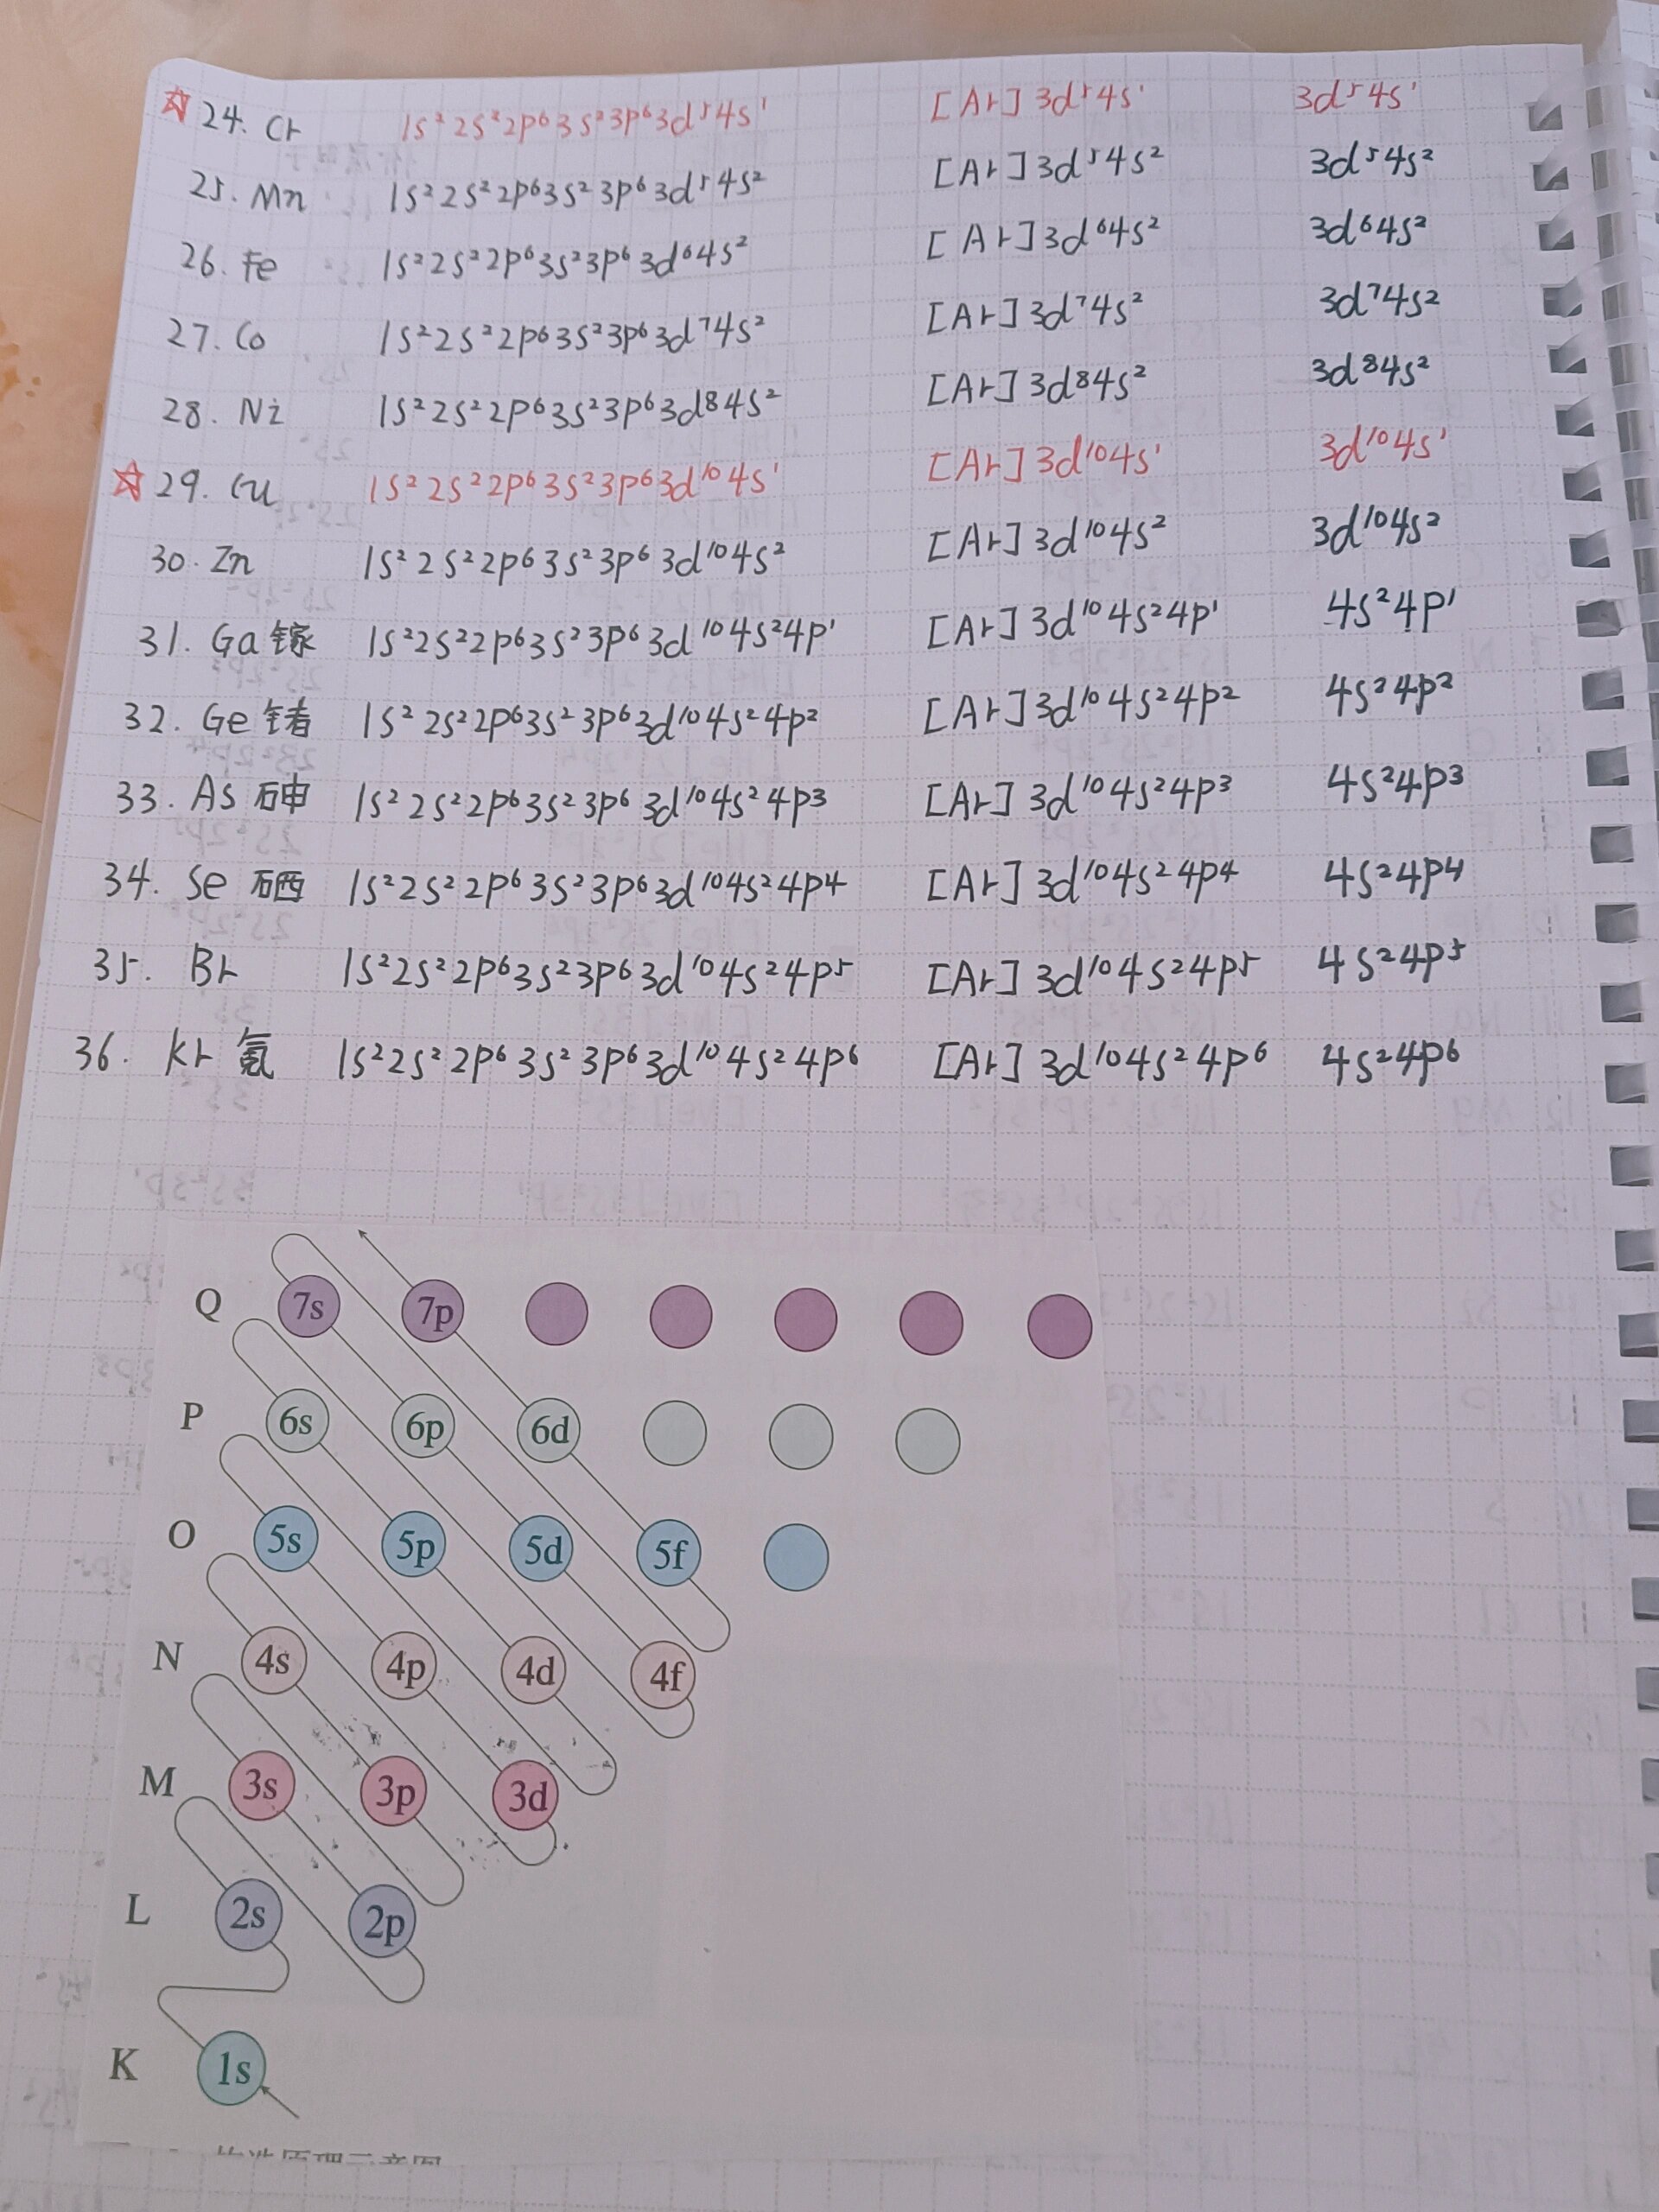 ☆ 24. Cr 1s²2s²2p⁶3s²3p⁶3d⁵4s¹ [Ar]3d⁵4s¹ 3d⁵4s¹
25. Mn 1s²2s²2p⁶3s²3p⁶3d⁵4s² [Ar]3d⁵4s² 3d⁵4s²
26. Fe 1s²2s²2p⁶3s²3p⁶3d⁶4s² [Ar]3d⁶4s² 3d⁶4s²
27. Co 1s²2s²2p⁶3s²3p⁶3d⁷4s² [Ar]3d⁷4s² 3d⁷4s²
28. Ni 1s²2s²2p⁶3s²3p⁶3d⁸4s² [Ar]3d⁸4s² 3d⁸4s²
☆ 29. Cu 1s²2s²2p⁶3s²3p⁶3d¹⁰4s¹ [Ar]3d¹⁰4s¹ 3d¹⁰4s¹
30. Zn 1s²2s²2p⁶3s²3p⁶3d¹⁰4s² [Ar]3d¹⁰4s² 3d¹⁰4s²
31. Ga 镓 1s²2s²2p⁶3s²3p⁶3d¹⁰4s²4p¹ [Ar]3d¹⁰4s²4p¹ 4s²4p¹
32. Ge 锗 1s²2s²2p⁶3s²3p⁶3d¹⁰4s²4p² [Ar]3d¹⁰4s²4p² 4s²4p²
33. As 砷 1s²2s²2p⁶3s²3p⁶3d¹⁰4s²4p³ [Ar]3d¹⁰4s²4p³ 4s²4p³
34. Se 硒 1s²2s²2p⁶3s²3p⁶3d¹⁰4s²4p⁴ [Ar]3d¹⁰4s²4p⁴ 4s²4p⁴
35. Br 1s²2s²2p⁶3s²3p⁶3d¹⁰4s²4p⁵ [Ar]3d¹⁰4s²4p⁵ 4s²4p⁵
36. Kr 氪 1s²2s²2p⁶3s²3p⁶3d¹⁰4s²4p⁶ [Ar]3d¹⁰4s²4p⁶ 4s²4p⁶
Q 7s 7p
P 6s 6p 6d
O 5s 5p 5d 5f
N 4s 4p 4d 4f
M 3s 3p 3d
L 2s 2p
K 1s